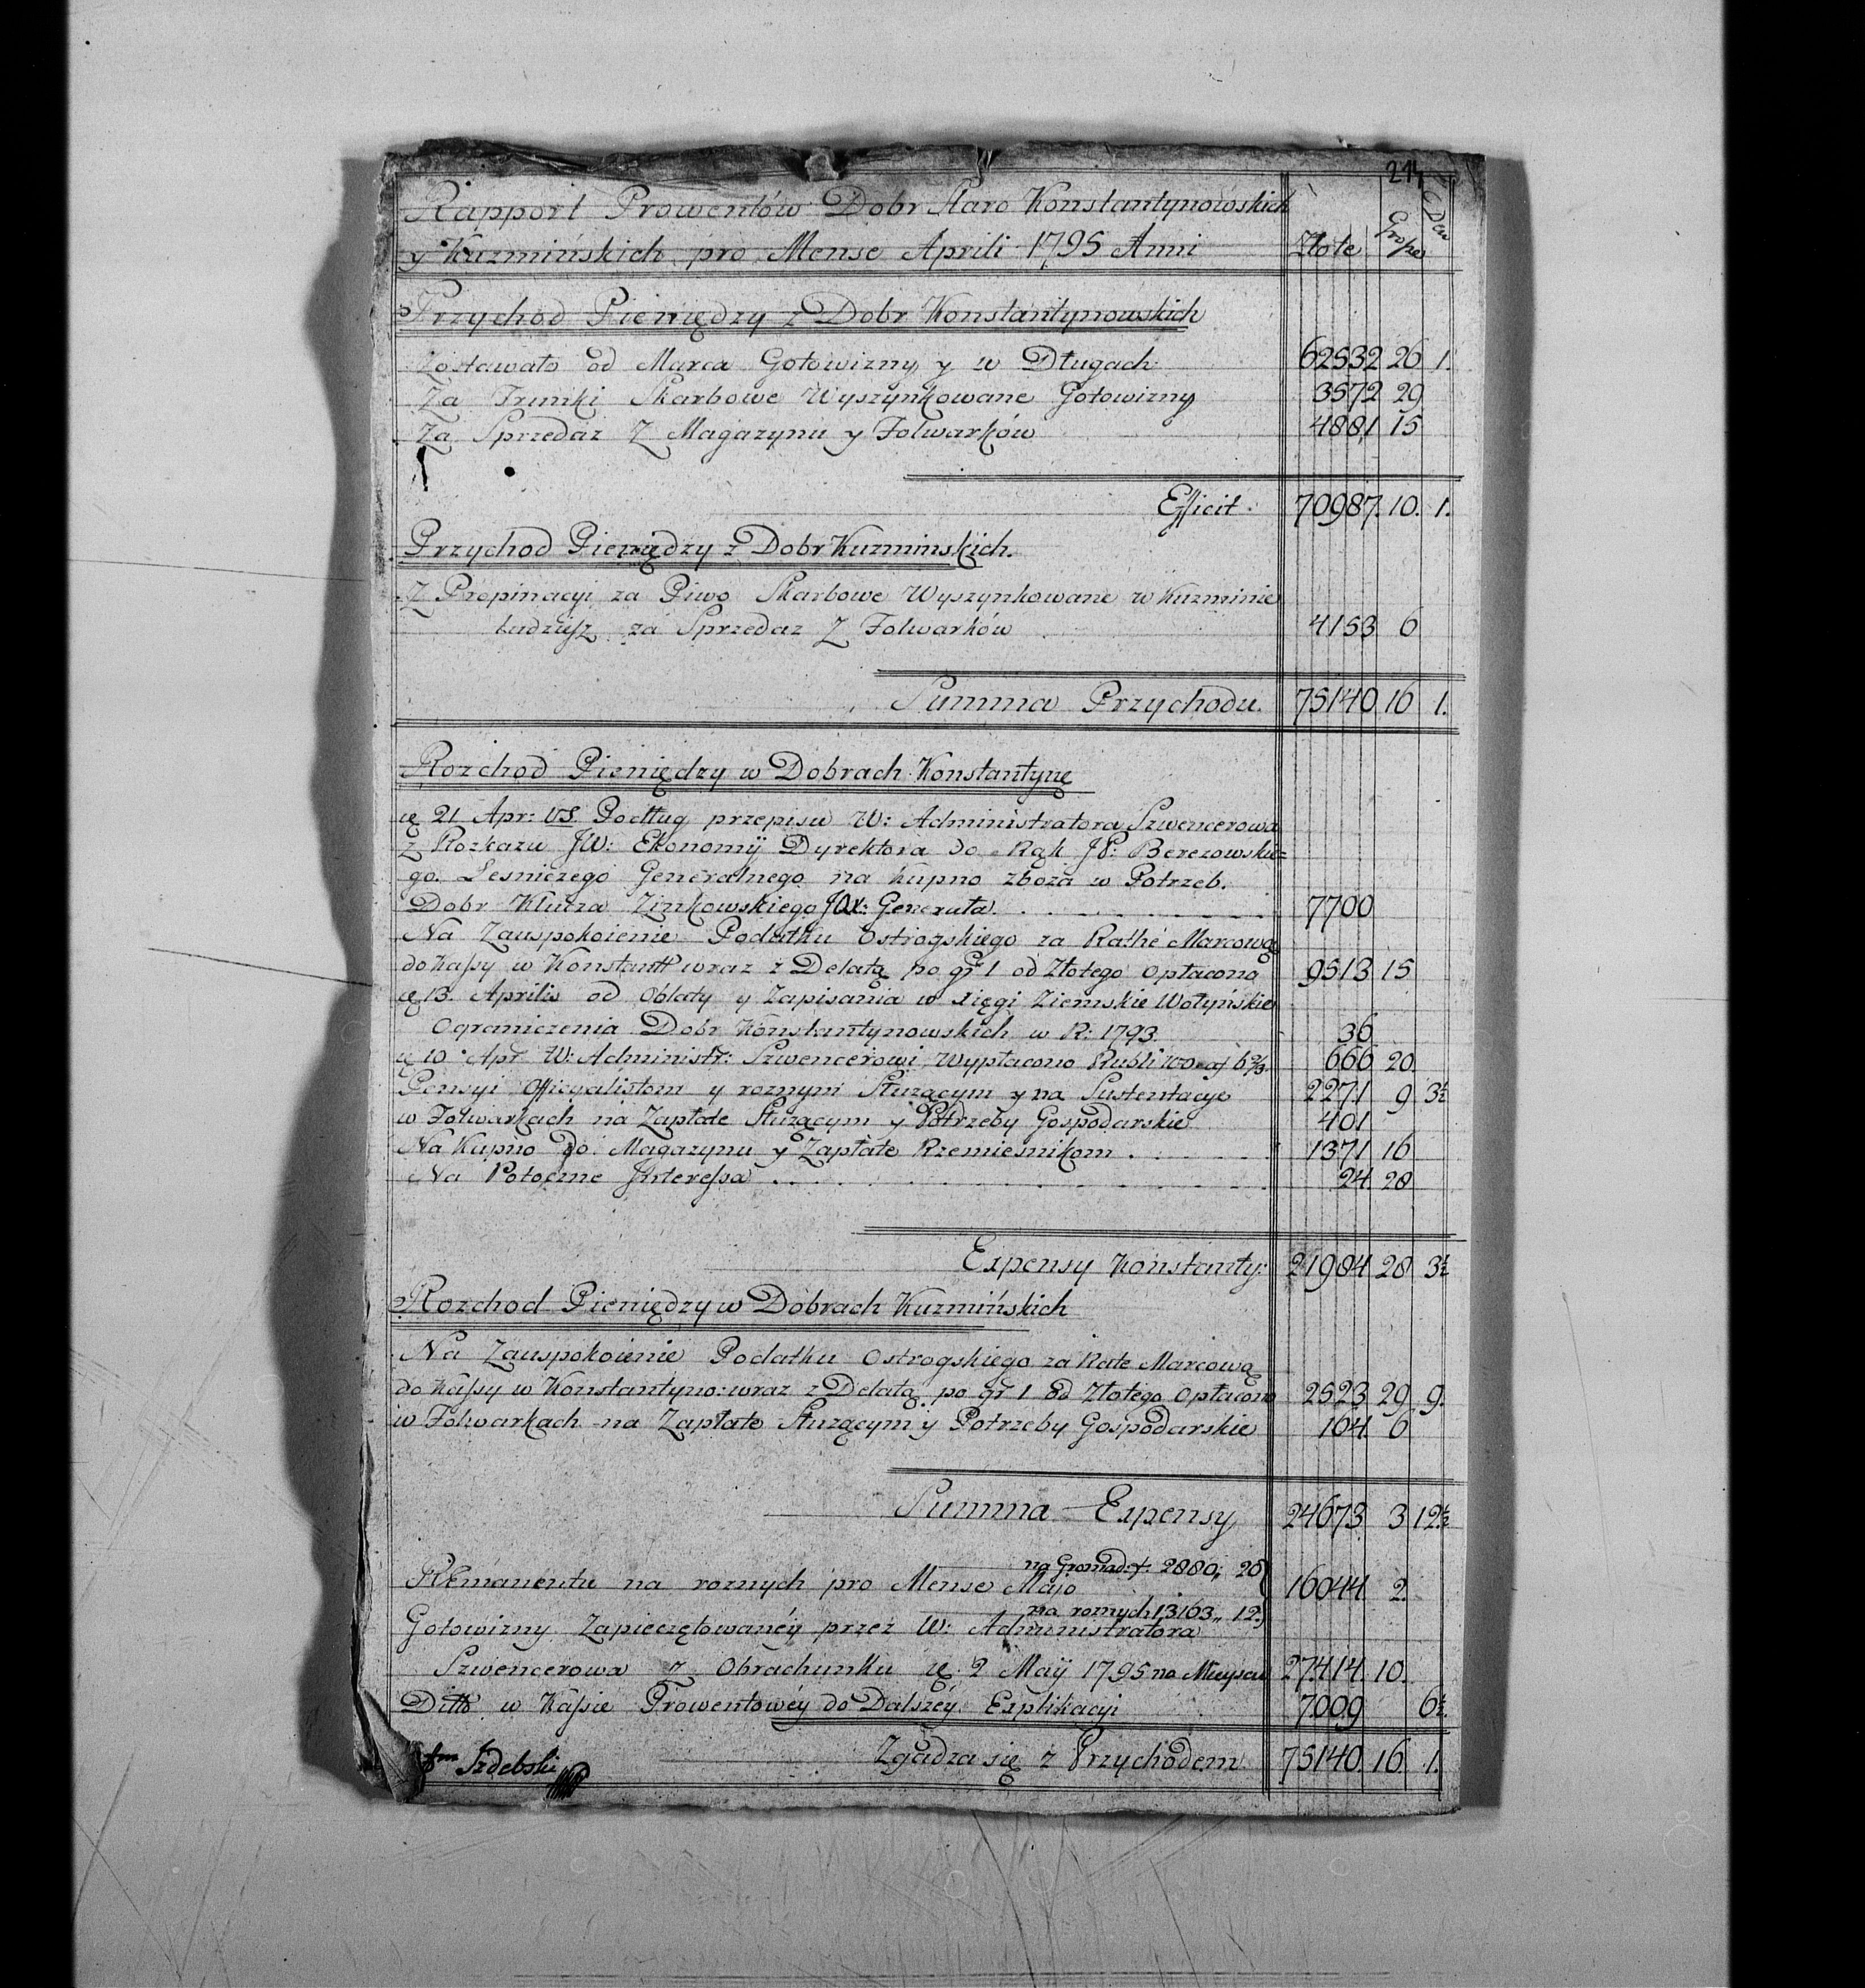 214
Rapport Prowentów Dobr Staro Konstantynowskich
y Kuzmińskich pro Mense Aprili 1795 Anni Złote Grosze Den
Przychod Pieniędzy z Dobr Konstantynowskich
Zostawało od Marca Gotowizny y w Długach 62532 26 1.
Za Trunki Skarbowe Wyszynkowane Gotowizny 3572 29
Za Sprzedaz Z Magazynu y Folwarków 4881 15
Efficit. 70987. 10. 1.
Przychod Pieniędzy z Dobr Kuzminskich.
Z Propinacyi za Piwo Skarbowe Wyszynkowane w Kuzminie
tudziesz za Sprzedaz Z Folwarków 4153 6
Summa Przychodu. 75140 16 1.
Rozchod Pieniędzy w Dobrach Konstantynę
21 Apr: VS. Podług przepisu W: Administratora Szwencerowa
z Rozkazu JW: Ekonomij Dyrektora do Rąk JP: Berezowskie=
go. Lesniczego Generalnego na kupno zboza w Potrzeb.
Dobr Klucza Zinkowskiego JOX: Generała. 7700
Na Zauspokoienie Podatku Ostrogskiego za Rathę Marcową
do Kassy w Konstantt wraz z Delatą po gr 1 od Złotego opłacono 9513 15
13. Aprilis od Oblaty y Zapisania w xięgi Ziemskie Wołyńskie
Ograniczenia Dobr Konstantynowskich w R: 1793. 36
10 Apr W: Administr: Szwencerowi Wypłacono Rubli 100 aƒ 6 2/3 666 20
Pensyi Officyalistom y roznym Służącym y na Sustentacye 2271 9 3½
w Folwarkach na Zapłate Służącym y Potrzeby Gospodarskie 401
Na Kupno do Magazynu y Zapłate Rzemiesnikom. 1371 16
Na Potoczne Jnteressa 24 28
Expensy Konstanty: 21984 28 3½
Rozchod Pieniędzy w Dobrach Kuzmińskich
Na Zauspokoienie Podatku Ostrogskiego za Rate Marcową
do Kassy w Konstantyno: wraz z Delatą po gr 1 od Złotego opłacono 2523 29 9.
w Folwarkach na Zapłate Służącym y Potrzeby Gospodarskie 164 6
Summa Expensy 24673 3 12½
na Gromad: 2880,, 20
Remanentu na roznych pro Mense Majo 16044 2.
na roznych 13163,, 12.
Gotowizny Zapieczętowanéy przez W: Administratora
Szwencerowa z Obrachunku 2 Maij 1795 na Mieyscu 27414 10.
Ditto w Kassie Prowentowéy do Dalszéy Explikacyi 7009 6½
Zgadza się z Przychodem 75140. 16. 1.